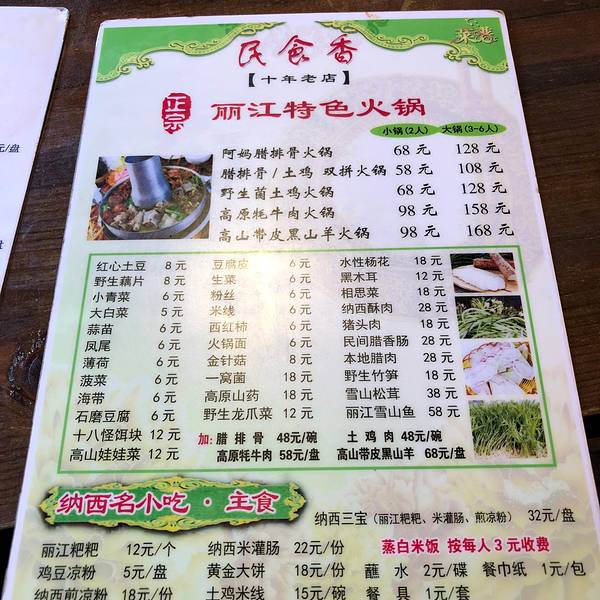 民食香
菜谱
【十年老店】
正宗 丽江特色火锅
小锅(2人) 大锅(3-6人)
阿妈腊排骨火锅 68 元 128 元
腊排骨/土鸡 双拼火锅 58 元 108 元
野生菌土鸡火锅 68 元 128 元
高原牦牛肉火锅 98 元 158 元
高山带皮黑山羊火锅 98 元 168 元
红心土豆 8 元 豆腐皮 6 元 水性杨花 18 元
野生藕片 8 元 生菜 6 元 黑木耳 12 元
小青菜 6 元 粉丝 6 元 相思菜 18 元
大白菜 5 元 米线 6 元 纳西酥肉 28 元
蒜苗 6 元 西红柿 6 元 猪头肉 28 元
凤尾 6 元 火锅面 6 元 民间腊香肠 28 元
薄荷 6 元 金针菇 8 元 本地腊肉 28 元
菠菜 6 元 一窝菌 18 元 野生竹笋 18 元
海带 6 元 高原山药 18 元 雪山松茸 38 元
石磨豆腐 6 元 野生龙爪菜 12 元 丽江雪山鱼 58 元
十八怪饵块 12 元 加: 腊排骨 48元/碗 土鸡肉 48元/碗
高山娃娃菜 12 元 高原牦牛肉 58元/盘 高山带皮黑山羊 68元/盘
纳西名小吃·主食
纳西三宝(丽江粑粑、米灌肠、煎凉粉) 32元/盘
丽江粑粑 12元/个 纳西米灌肠 22元/份 蒸白米饭 按每人3元收费
鸡豆凉粉 5元/盘 黄金大饼 18元/份 蘸水 2元/碟 餐巾纸 1元/包
纳西煎凉粉 18元/份 土鸡米线 15元/碗 餐具 1元/套
元/盘